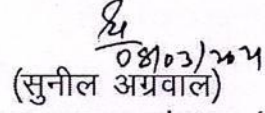 08/03/2021
(सुनील अग्रवाल)